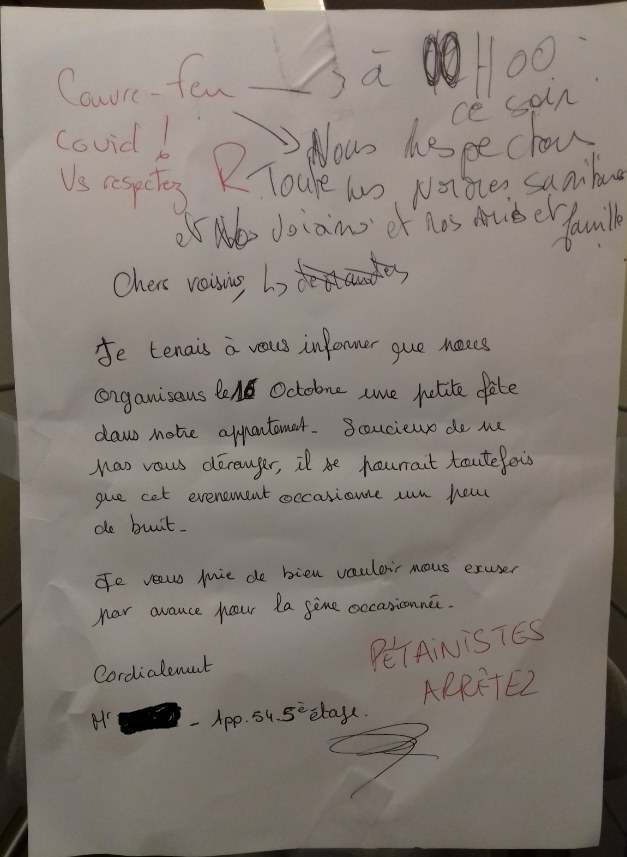 Couvre-feu → à 00H00
ce soir.
covid ! Nous respectons
Vs respectez R Toute les Normes sanitaires
et Nos Voisins et nos Amis et famille
Chers voisins,
Je tenais à vous informer que nous
organisons le 16 Octobre une petite fête
dans notre appartement. Soucieux de ne
pas vous déranger, il se pourrait toutefois
que cet evenement occasionne un peu
de bruit.
Je vous prie de bien vouloir nous excuser
par avance pour la gêne occasionnée.
Cordialement
PÉTAINISTES
ARRÊTEZ
Mr - App. 54. 5è étage.